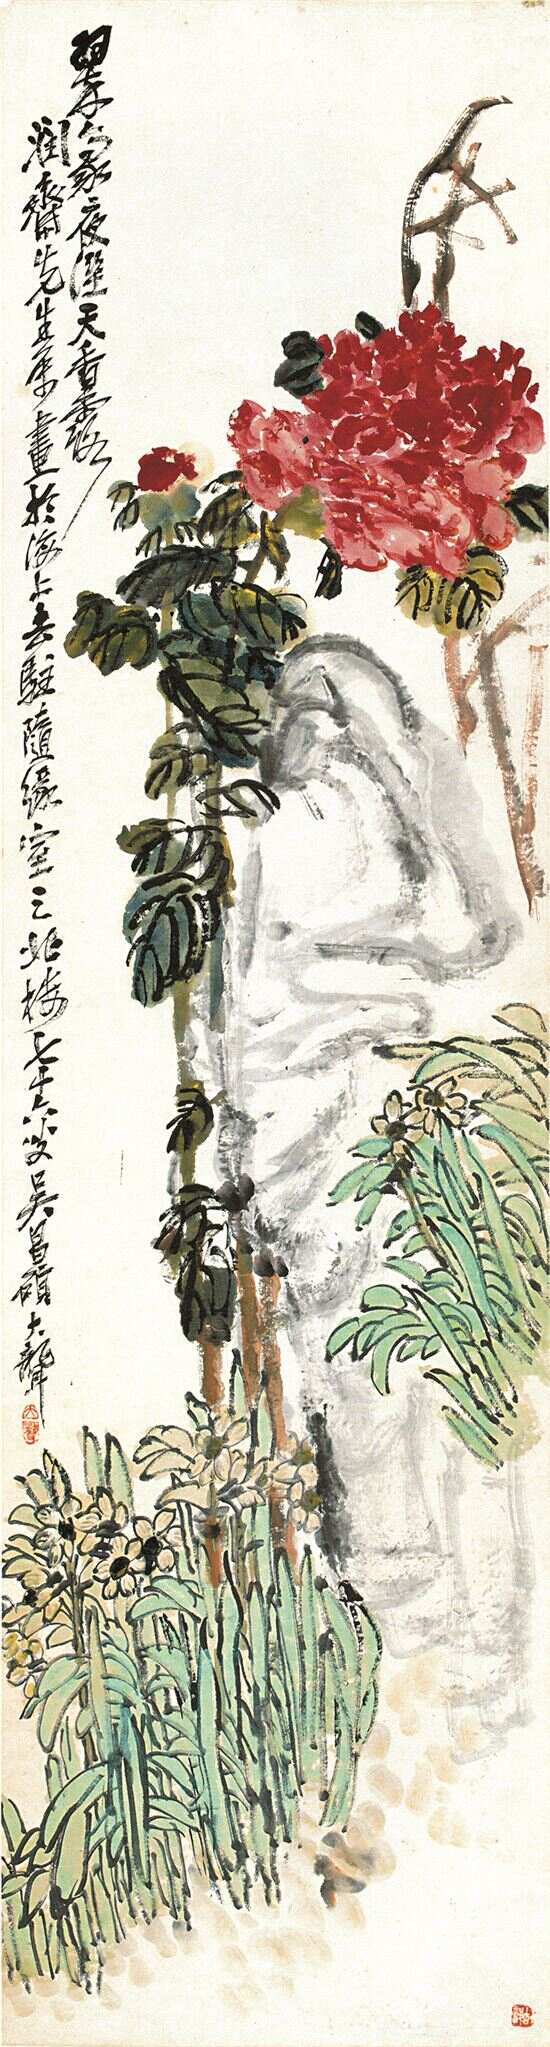 翠夜溼天香露
潤齋先生屬畫於海上去駐隨緣室之北樓七十六叟吳昌碩大聾
大聾